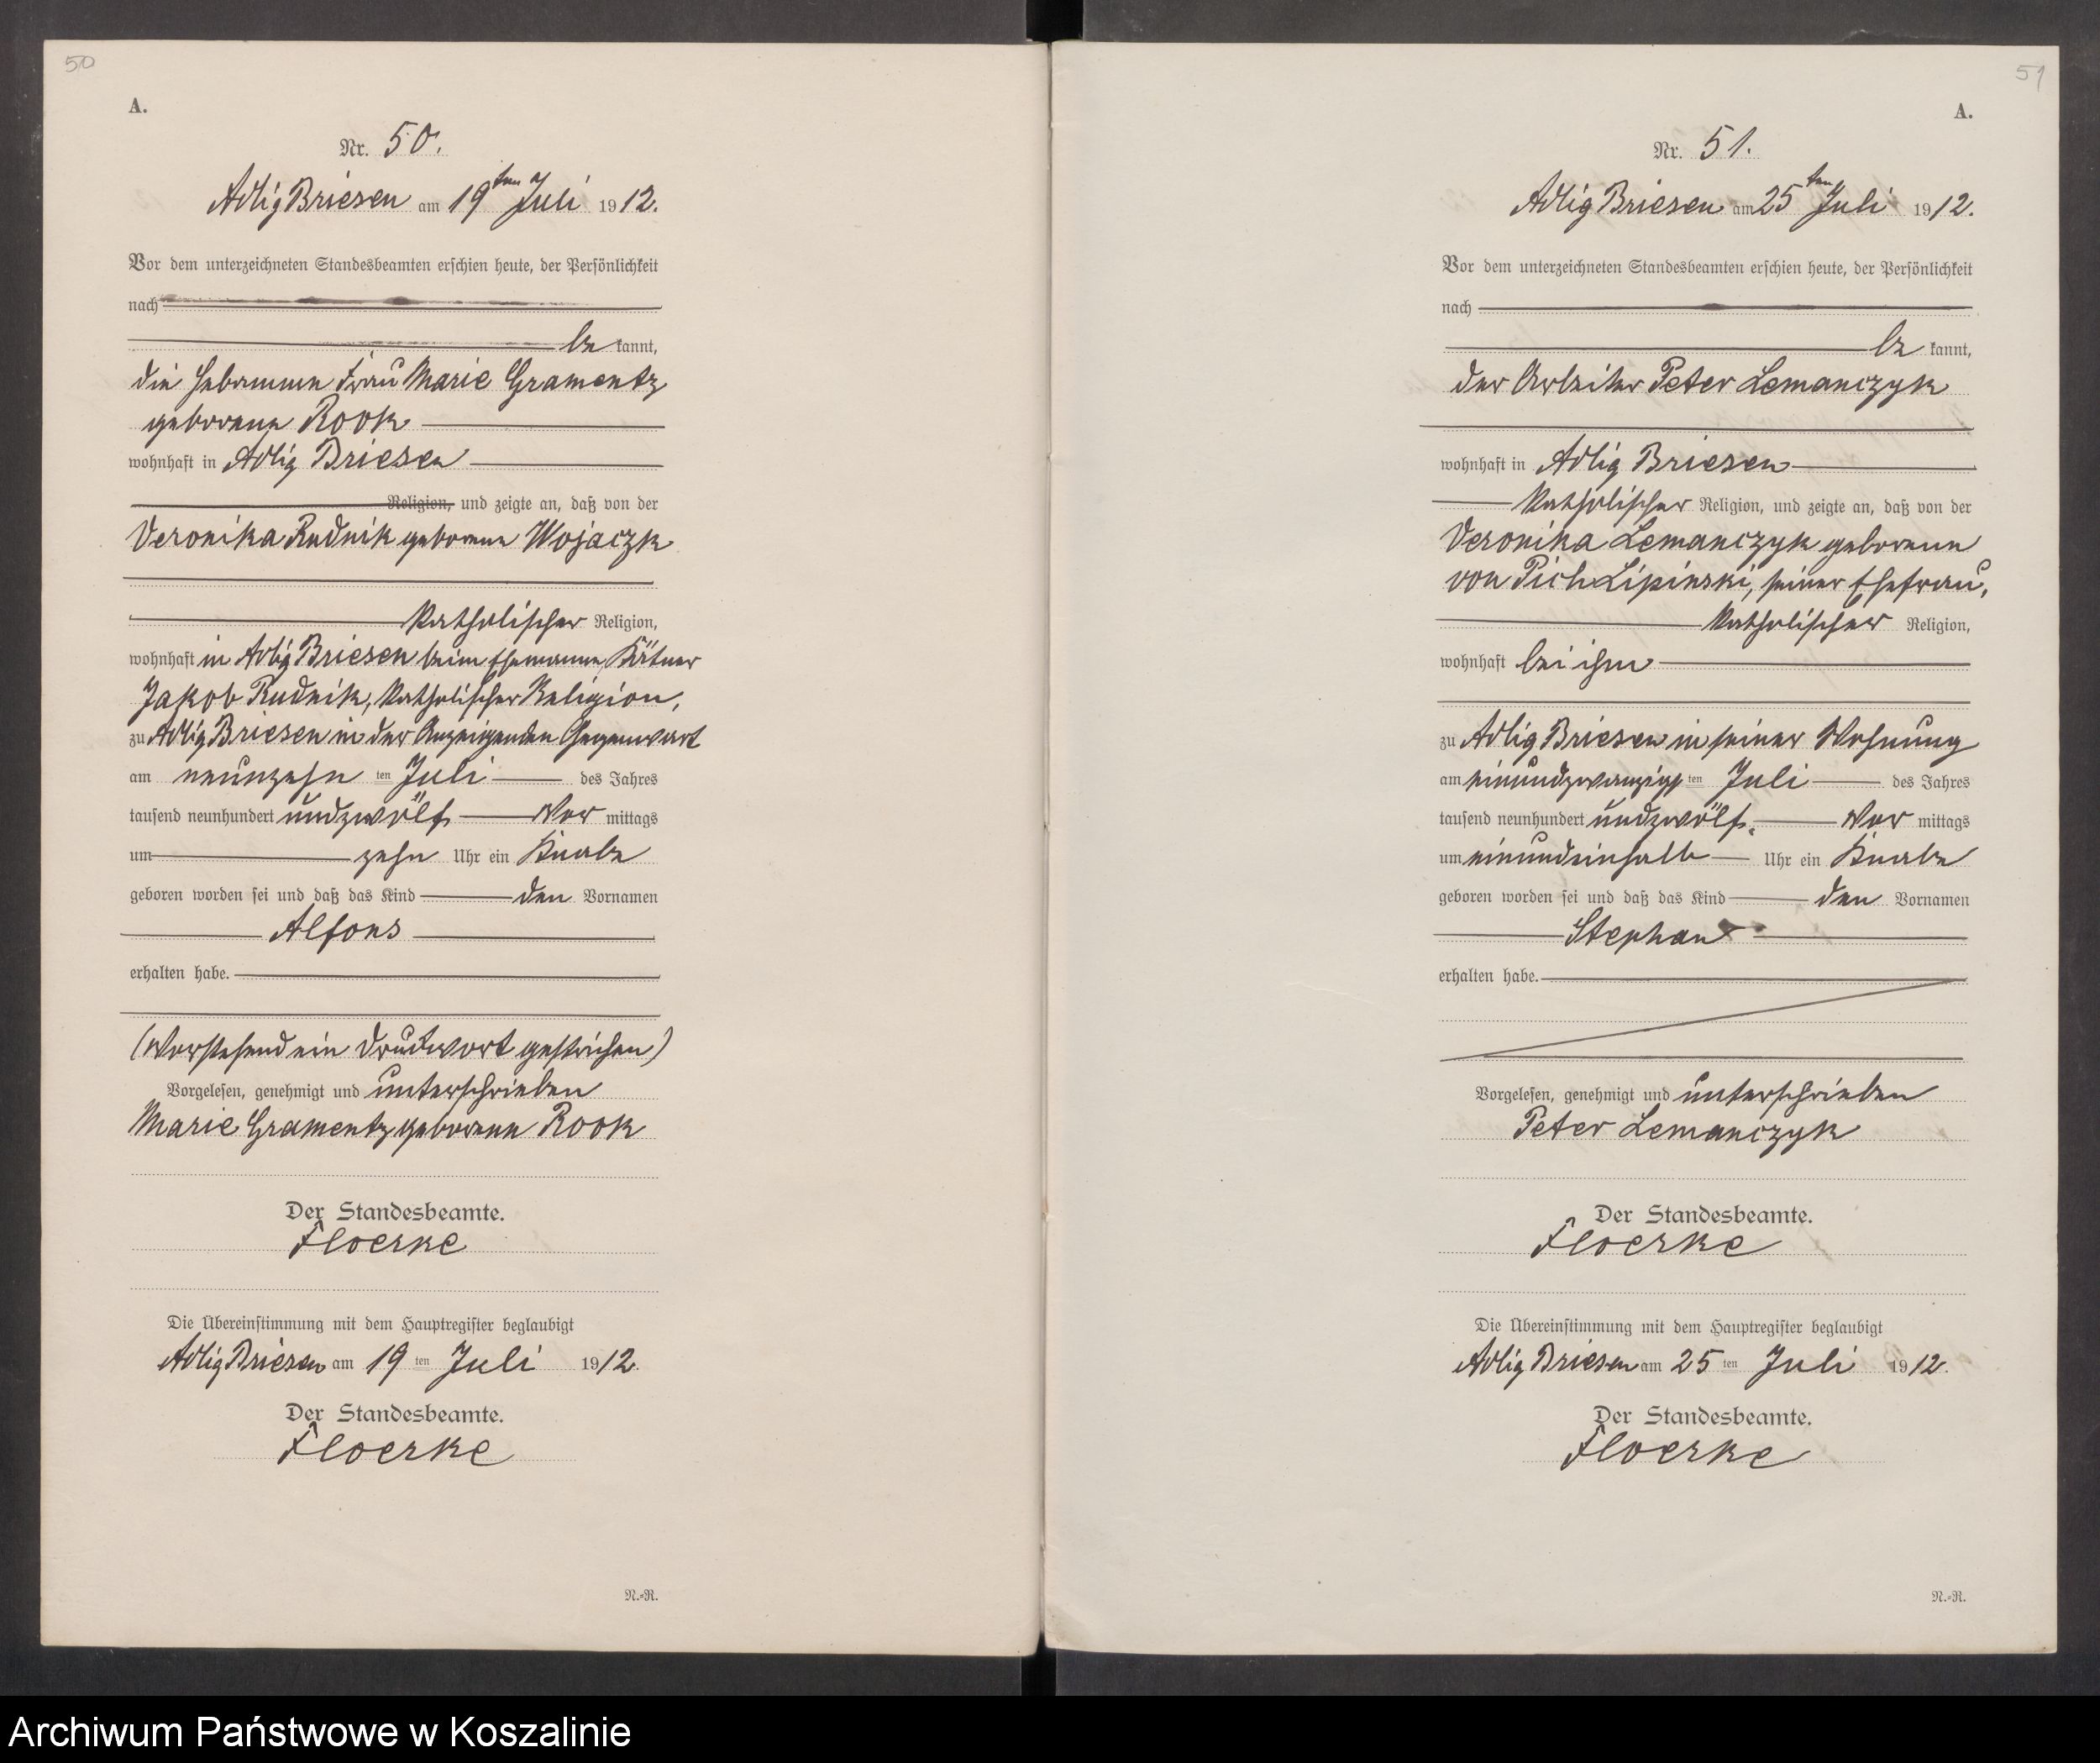 50
A.
Nr. 50.
Adlig Briesen am 19ten Juli 1912.
Vor dem unterzeichneten Standesbeamten erschien heute, der Persönlichkeit
nach
be kannt,
die Hebamme Frau Marie Gramentz
geborene Rook
wohnhaft in Adlig Briesen
Religion, und zeigte an, daß von der
Veronika Rudnik geborene Wojaczk
katholischer Religion,
wohnhaft in Adlig Briesen beim Ehemanne, Kätner
Jakob Rudnik, katholischer Religion,
zu Adlig Briesen in der Anzeigenden Gegenwart
am neunzehn ten Juli des Jahres
tausend neunhundert undzwölf Vor mittags
um zehn Uhr ein Knabe
geboren worden sei und daß das Kind den Vornamen
Alfons
erhalten habe.
(Vorstehend ein Druckwort gestrichen)
Vorgelesen, genehmigt und unterschrieben
Marie Gramentz geborene Rook
Der Standesbeamte.
Floerke
Die Übereinstimmung mit dem Hauptregister beglaubigt
Adlig Briesen am 19 ten Juli 1912.
Der Standesbeamte.
Floerke
N.-R.
51
A.
Nr. 51.
Adlig Briesen am 25ten Juli 1912.
Vor dem unterzeichneten Standesbeamten erschien heute, der Persönlichkeit
nach
be kannt,
der Arbeiter Peter Lemanczyk
wohnhaft in Adlig Briesen
katholischer Religion, und zeigte an, daß von der
Veronika Lemanczyk geborene
von Pich Lipinski, seiner Ehefrau,
katholischer Religion,
wohnhaft bei ihm
zu Adlig Briesen in seiner Wohnung
am einundzwanzigs ten Juli des Jahres
tausend neunhundert undzwölf Vor mittags
um einundeinhalb Uhr ein Knabe
geboren worden sei und daß das Kind den Vornamen
Stephan
erhalten habe.
Vorgelesen, genehmigt und unterschrieben
Peter Lemanczyk
Der Standesbeamte.
Floerke
Die Übereinstimmung mit dem Hauptregister beglaubigt
Adlig Briesen am 25 ten Juli 1912.
Der Standesbeamte.
Floerke
N.-R.
Archiwum Państwowe w Koszalinie